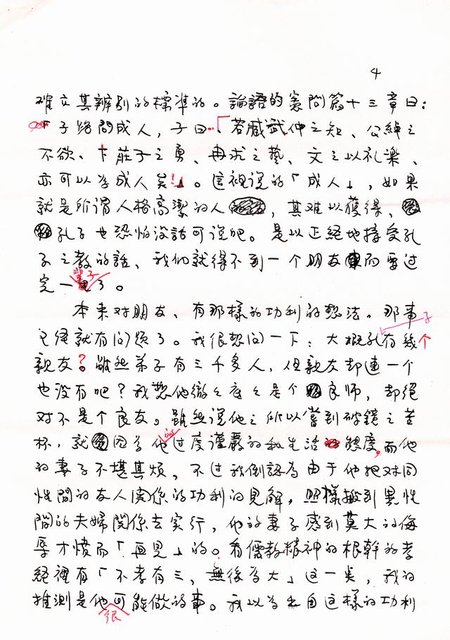 4
確立其辨別的標準的。論語的憲問第十三章曰:
「子路問成人,子曰「若臧武仲之知、公綽之
不欲、卞莊子之勇、冉求之藝、文之以礼樂、
亦可以為成人矣!」。這裡說的「成人」,如果
就是所謂人格高潔的人,其难以獲得、
孔子也恐怕沒話可說吧。是以正経地接受孔
子之教的話、我們就得不到一個朋友而要过
完一輩子了。
本来对朋友、有那樣的功利的想法。那事
已経就有问題了。我很想问一下:大概孔子有幾个
親友?雖然弟子有三千多人,但親友却連一个
也沒有吧?我想他徹之底之是个良师,却絕
对不是个良友。雖然說他之所以嘗到破鏡之苦
杯,就因为他过度谨嚴的私生活態度,而他
的妻子不堪其煩,不过我倒認为由于他把对同
性間的友人関係的功利的見解,照樣搬到異性
間的夫婦関係去实行,他的妻子感到莫大的侮
辱才憤而「再見」的。有儒教精神的根幹的孝
経裡有「不孝有三,無後为大」这一类,我的
推測是他很可能做的事。我以为出自这樣的功利